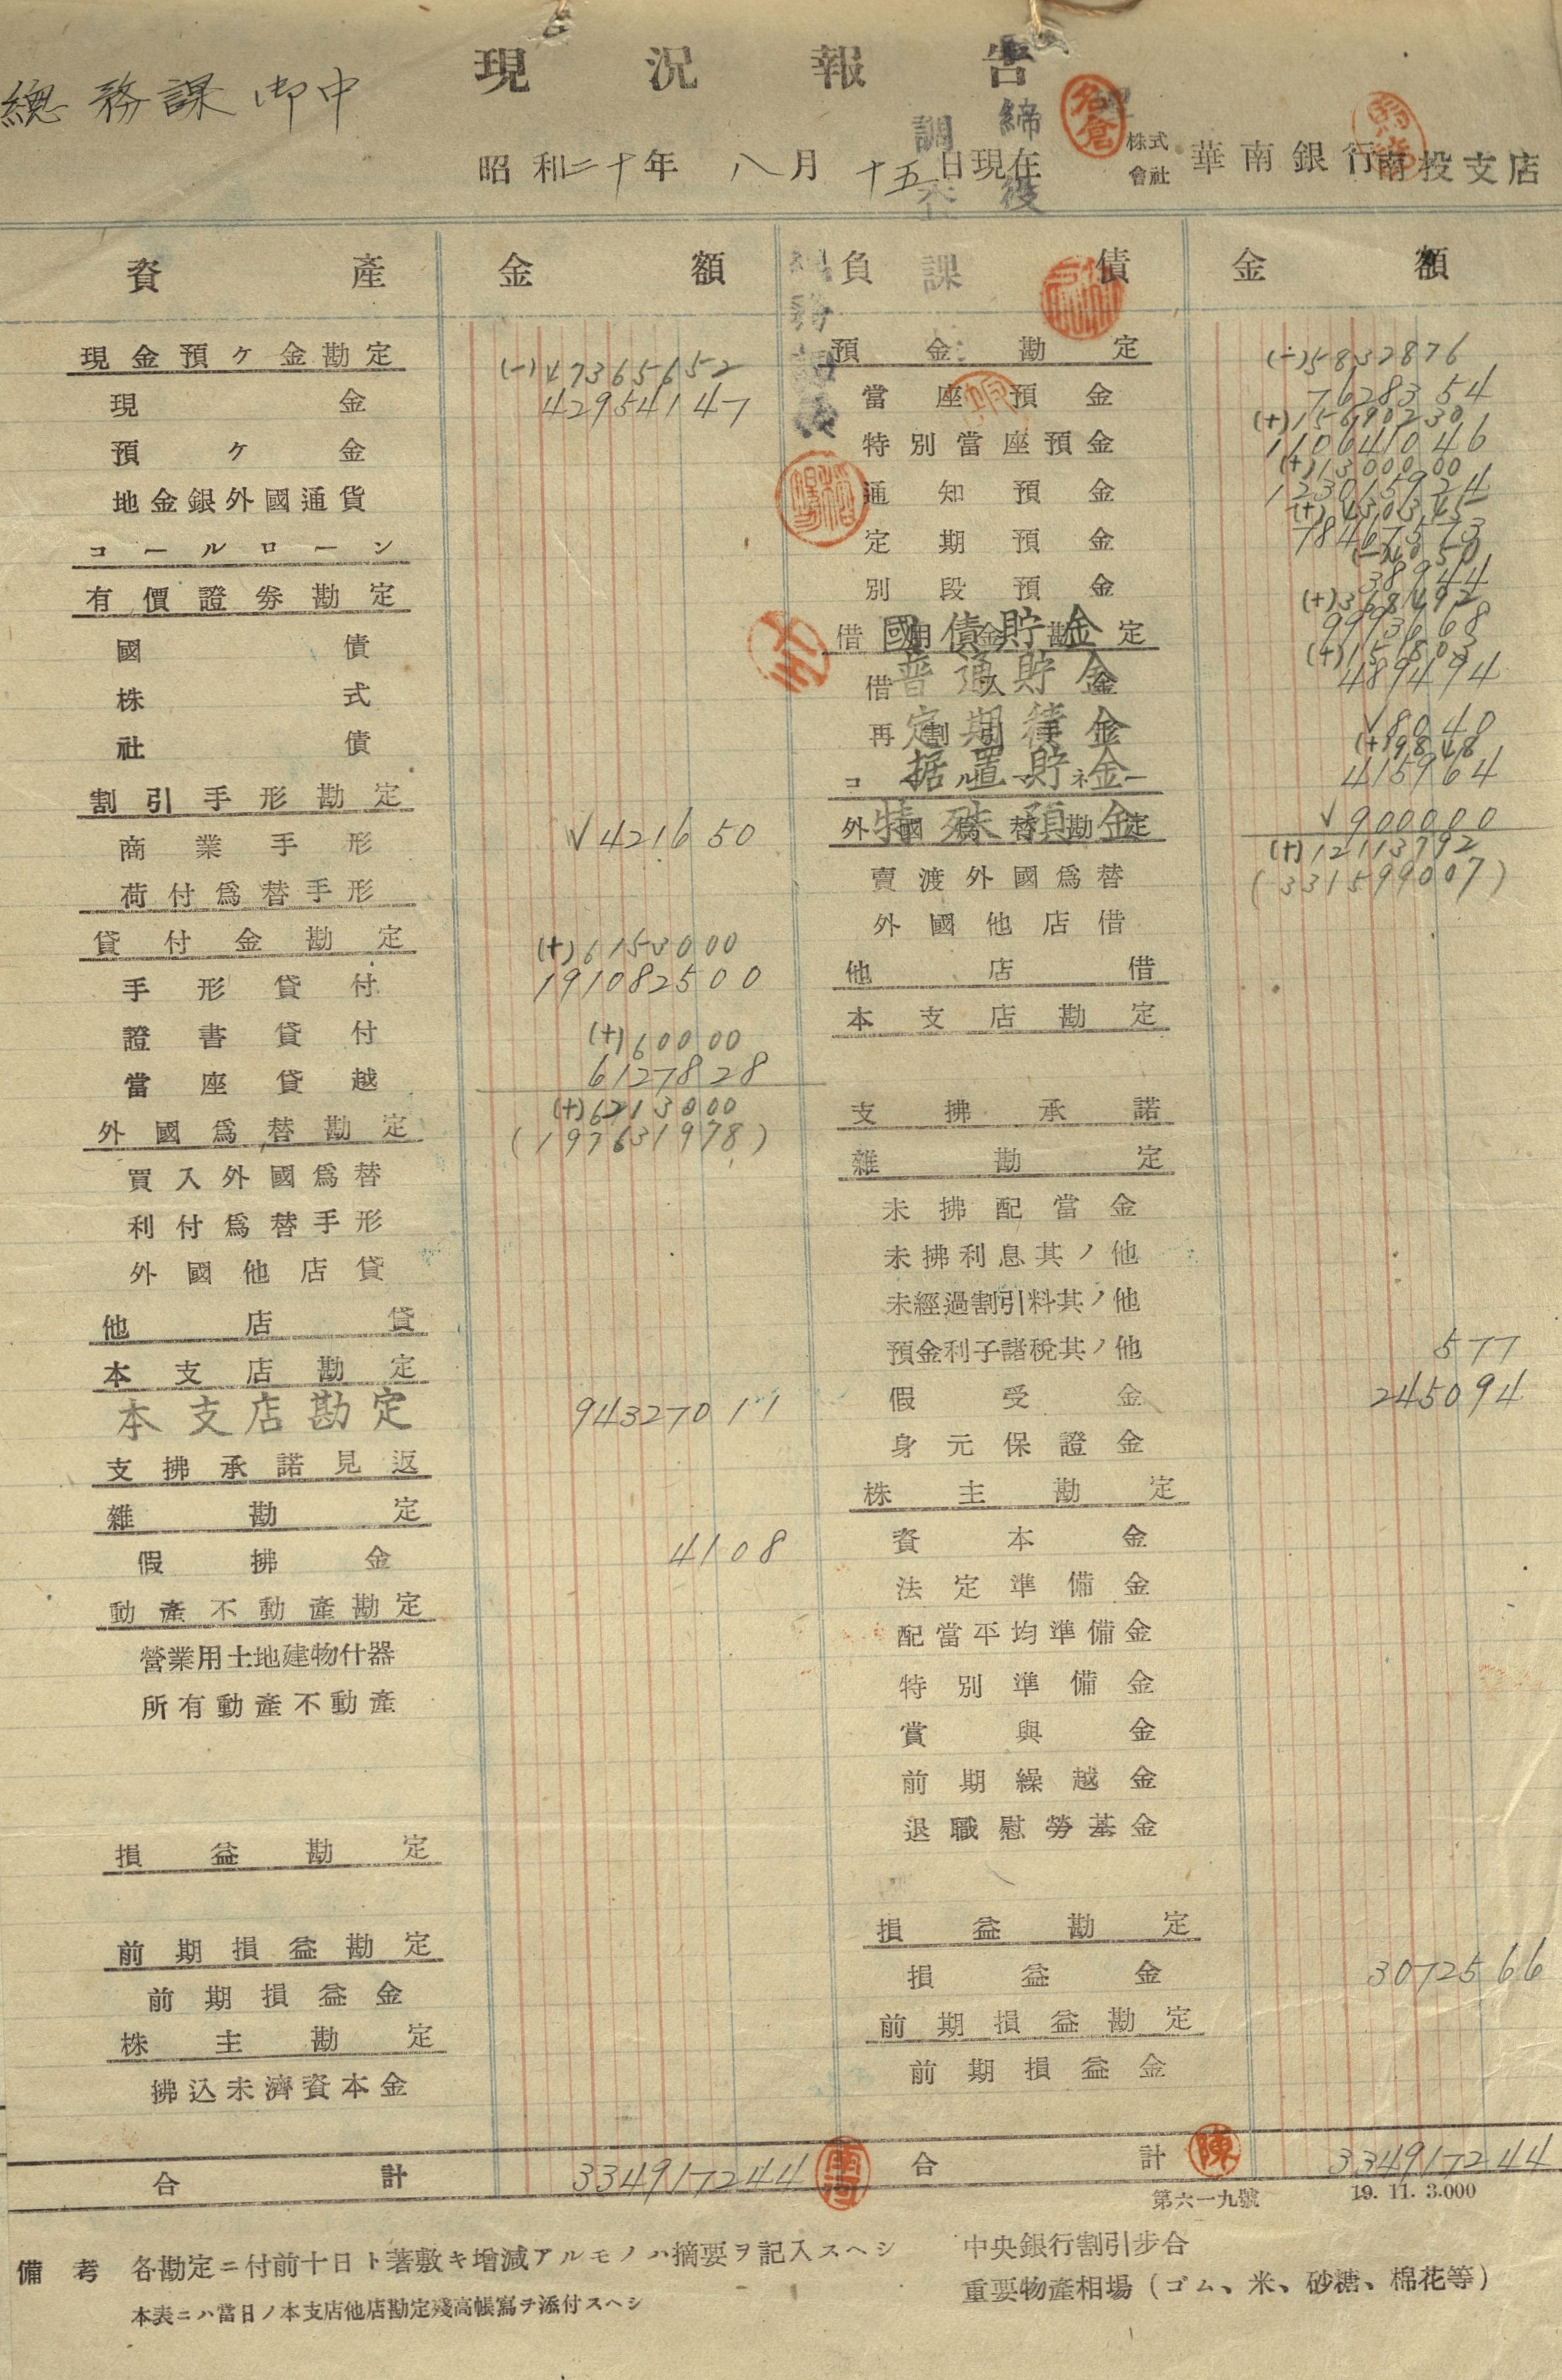 現況報告
總務課御中
昭和二十年八月十五日現在
株式會社 華南銀行南投支店
締役
調査課
名倉
資產 金額 負債 金額
現金預ケ金勘定 (-)47365652
現金 42954147
預ケ金
地金銀外國通貨
コールローン
有價證券勘定
國債
株式
社債
割引手形勘定
商業手形 √421650
荷付爲替手形
貸付金勘定 (+)6153000
手形貸付 191082500
證書貸付 (+)60000
當座貸越 6127828
(+)6213000
外國爲替勘定 (197631978)
買入外國爲替
利付爲替手形
外國他店貸
他店貸
本支店勘定
本支店勘定 94327011
支拂承諾見返
雜勘定
假拂金 4108
動產不動產勘定
營業用土地建物什器
所有動產不動產
損益勘定
前期損益勘定
前期損益金
株主勘定
拂込未濟資本金
合計 334917244
南河
預金勘定 (-)5832876
當座預金 7628354
(+)15690230
特別當座預金 110641046
(+)1300000
通知預金 123015924
(+)430345
定期預金 78467573
(-)4050
別段預金 38944
(+)368492
借用金勘定
國債貯金 9993668
(+)151803
借入金
普通貯金 489494
再割引手形
定期積金 √8040
(+)9848
コールマネー
据置貯金 415964
外國爲替勘定
特殊預金 √900000
(+)12113792
賣渡外國爲替 (331599007)
外國他店借
他店借
本支店勘定
支拂承諾
雜勘定
未拂配當金
未拂利息其ノ他
未經過割引料其ノ他
預金利子諸稅其ノ他 577
假受金 245094
身元保證金
株主勘定
資本金
法定準備金
配當平均準備金
特別準備金
賞與金
前期繰越金
退職慰勞基金
損益勘定
損益金 3072566
前期損益勘定
前期損益金
合計 陳 334917244
第六一九號 19. 11. 3.000
備考 各勘定ニ付前十日ト著敷キ增減アルモノハ摘要ヲ記入スヘシ
本表ニハ當日ノ本支店他店勘定殘高帳寫ヲ添付スヘシ
中央銀行割引步合
重要物產相場(ゴム、米、砂糖、棉花等)